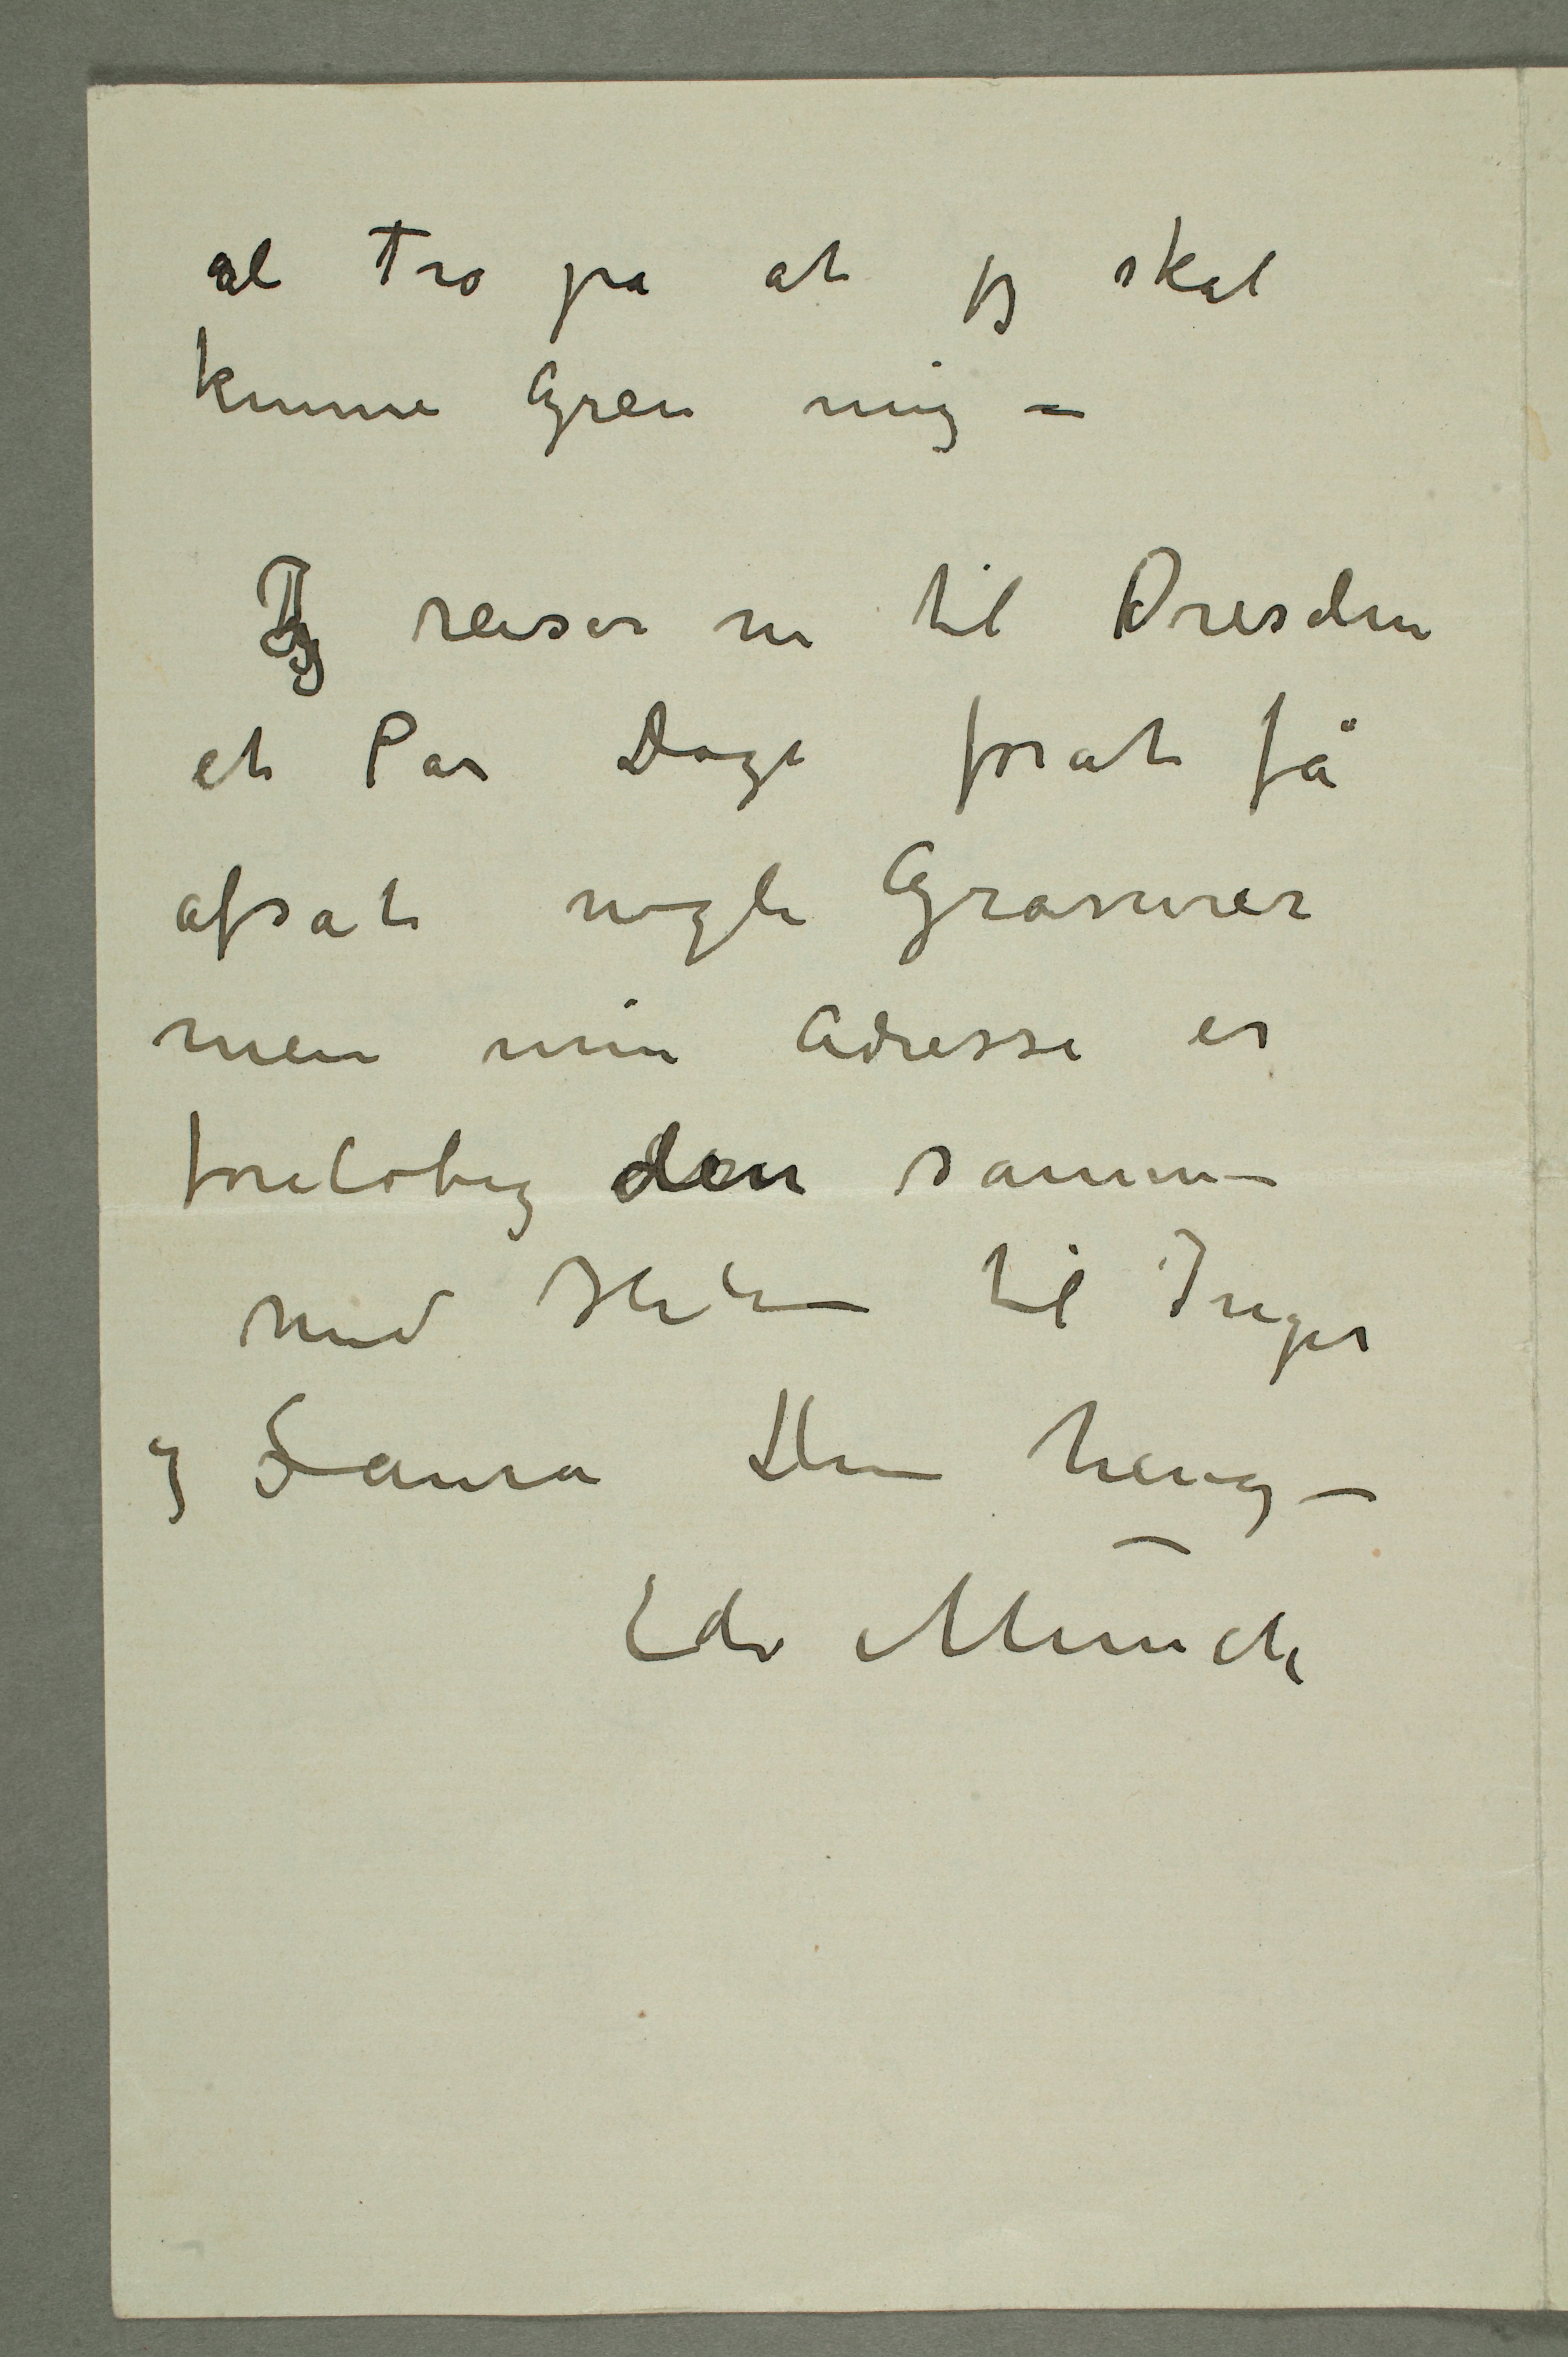 al Tro på at jeg skal
kunne Greie mig –
Jeg reiser nu til Dresden
et Par Dage forat få
afsat nogle Gravurer
men min Adresse er
foreløbig den samme
med Hilsen til Inger
og Laura Din heng.
Edv Munch